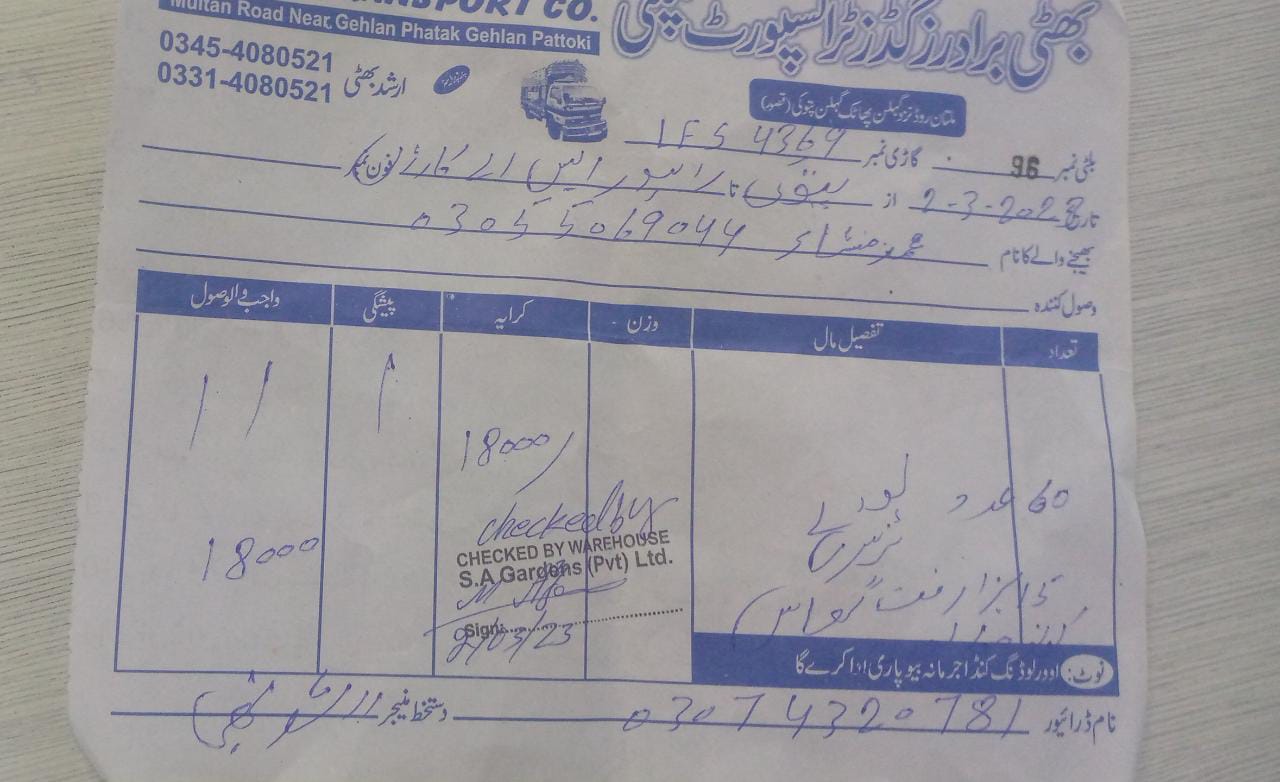 TRANSPORT CO.
Multan Road Near. Gehlan Phatak Gehlan Pattoki
بھٹی برادرز گڈز ٹرانسپورٹ کمپنی
0345-4080521
0331-4080521
ارشد بھٹی
ملتان روڈ نزد گہلن پھاٹک گہلن پتوکی (قصور)
بلٹی نمبر 96 گاڑی نمبر LES 4369
تاریخ 2-3-2023 از تا فون نمبر
بھیجنے والے کا نام 0305 5069044
وصول کنندہ
تعداد تفصیل مال وزن کرایہ پیشگی واجب الوصول
18000/
60 عدد پودے
نرسری
checked by
CHECKED BY WAREHOUSE
S.A Gardens (Pvt) Ltd.
18000
15 ہزار فٹ گھاس
Sign:
2/03/23
نوٹ: اوورلوڈنگ کنڈا جرمانہ بیوپاری ادا کرے گا
نام ڈرائیور 0307 4320781 دستخط منیجر